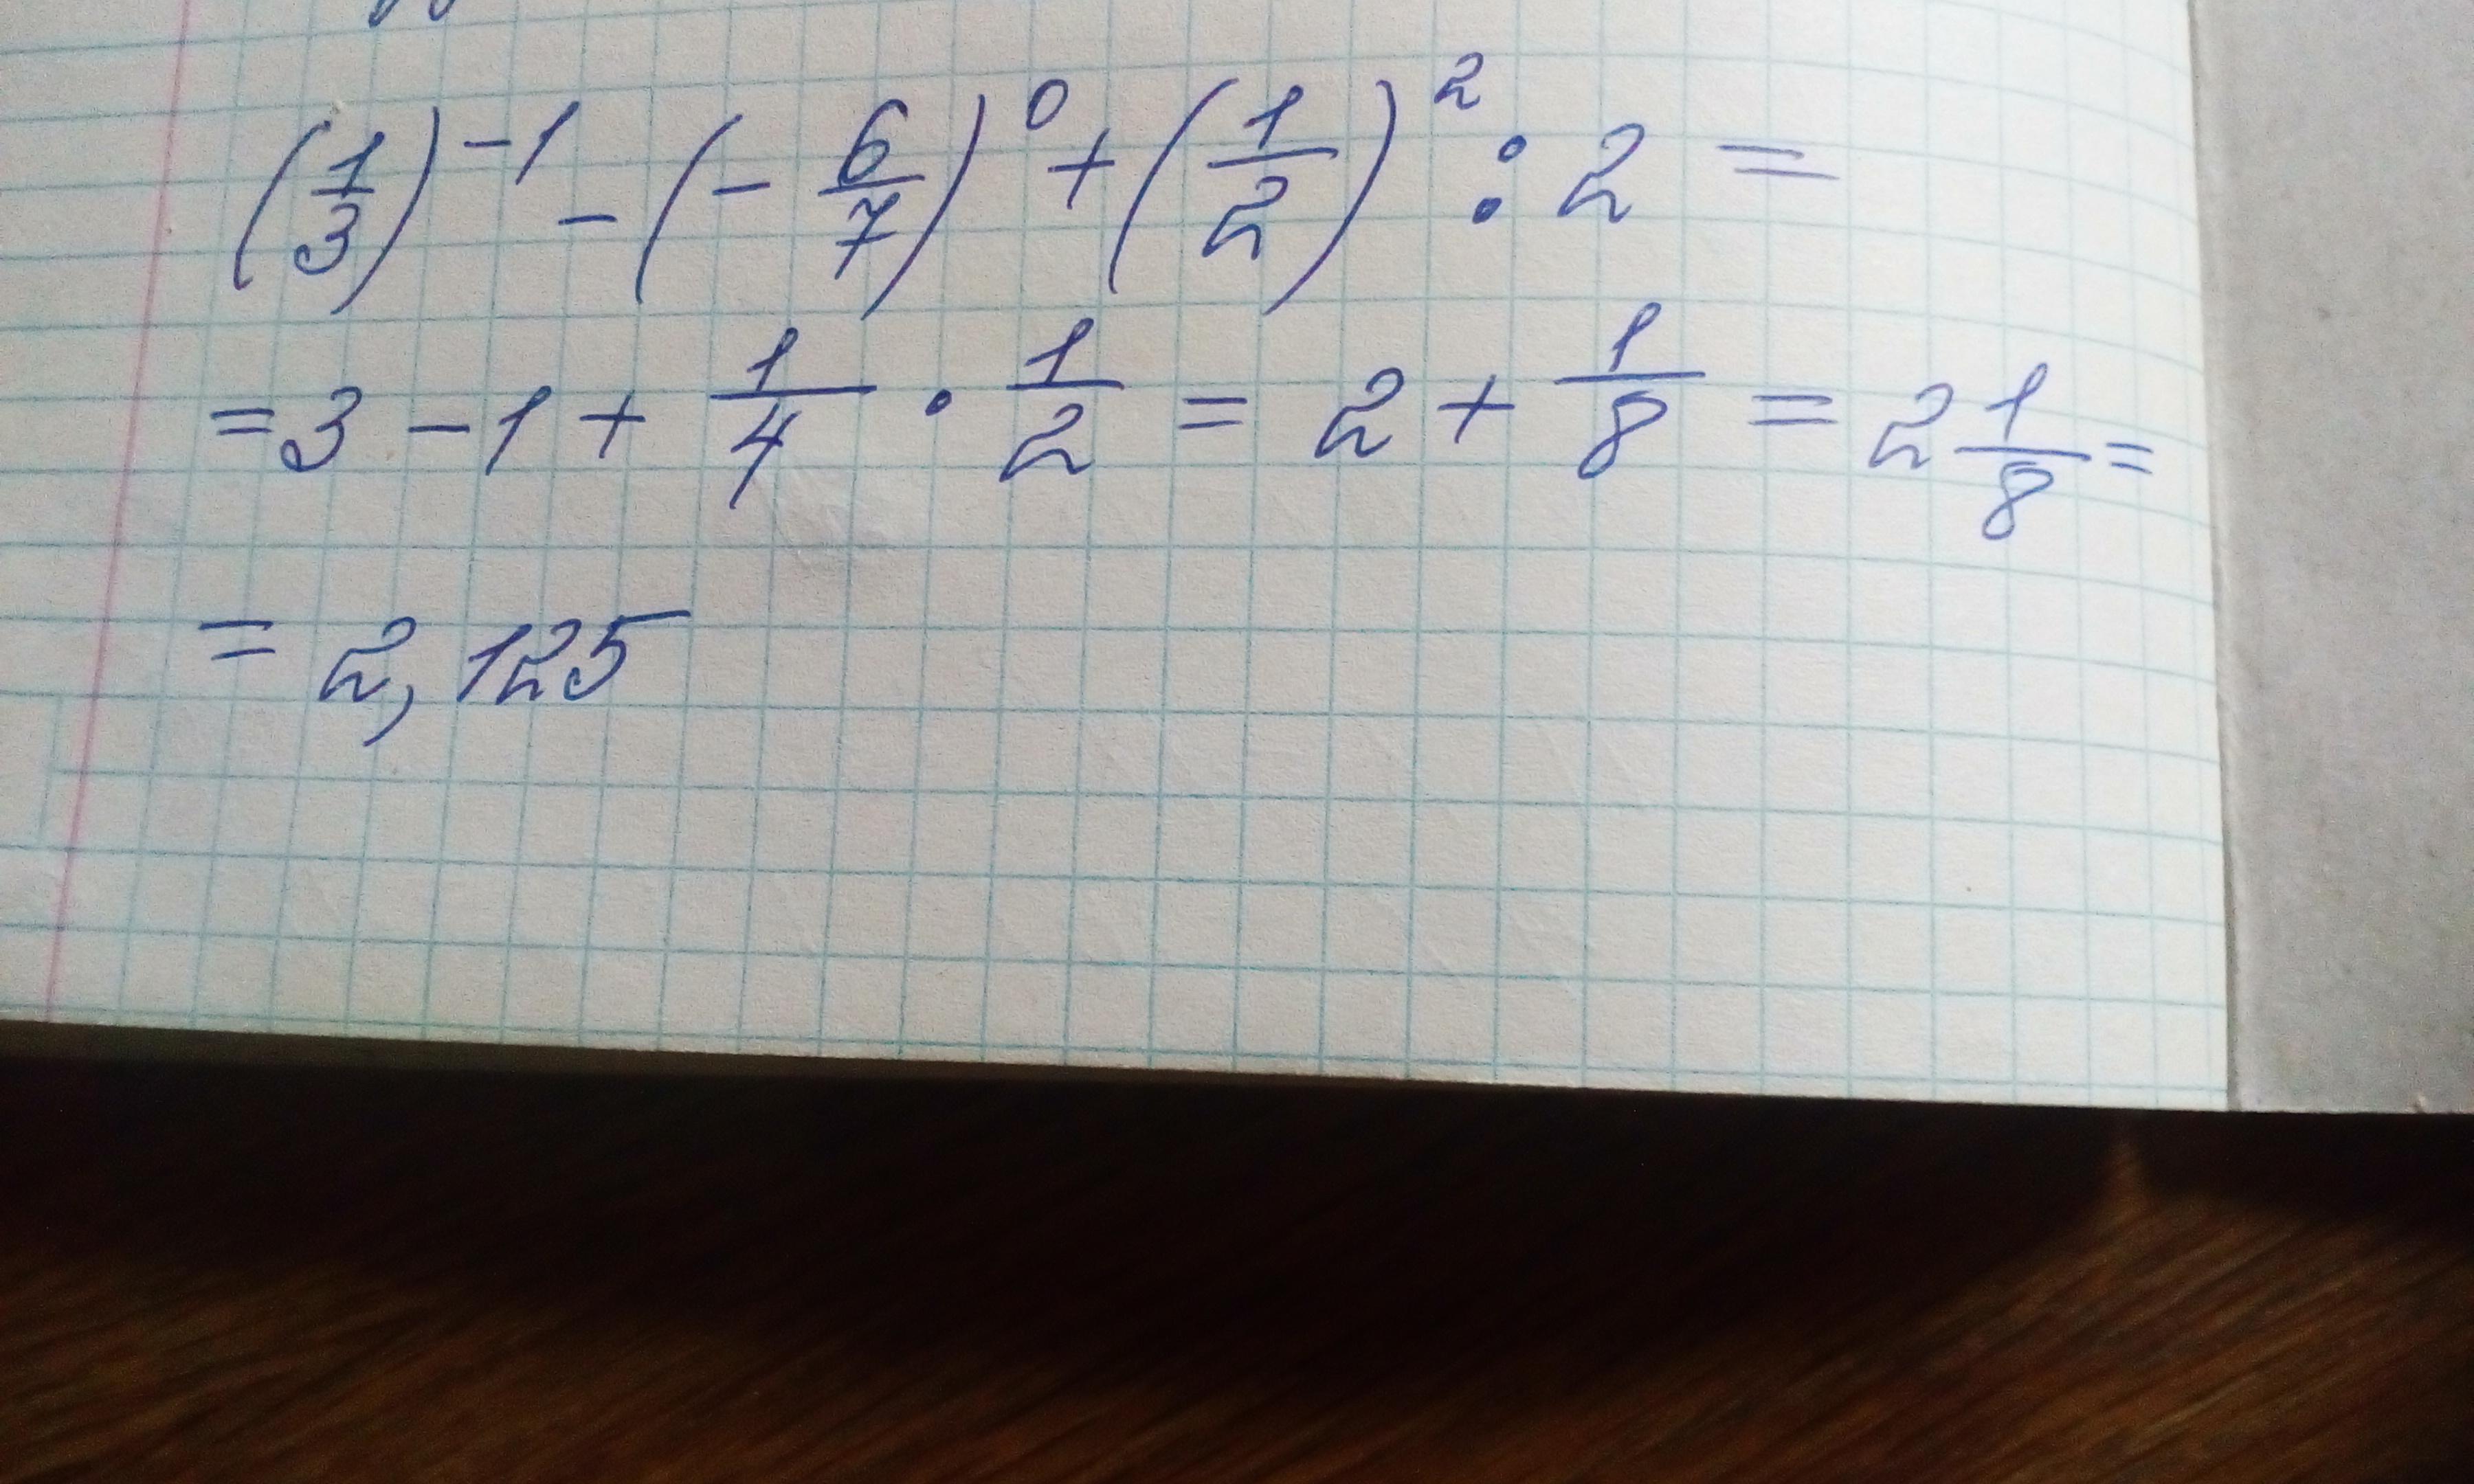 (1/3)^-1 - (- 6/7)^0 + (1/2)^2 : 2 =
= 3 - 1 + 1/4 · 1/2 = 2 + 1/8 = 2 1/8 =
= 2,125